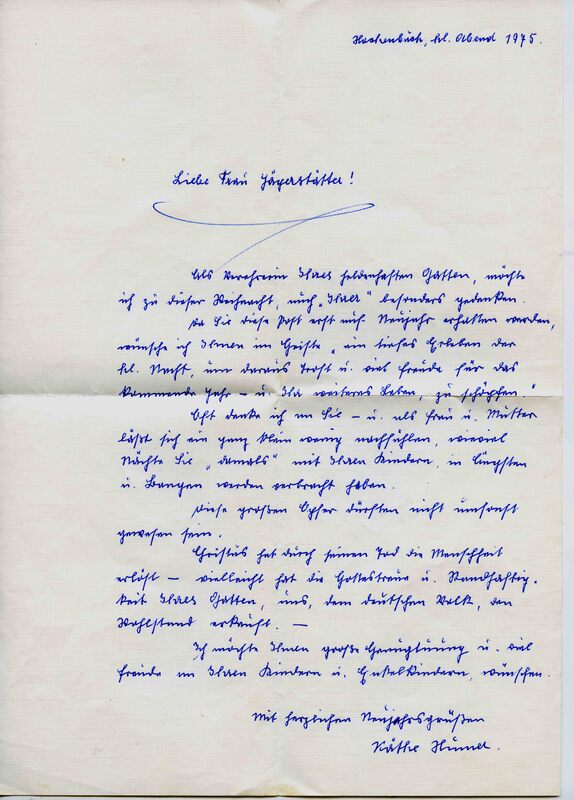 Hochenbuch, hl. Abend 1975.
Liebe Frau Jägerstätter!
Als Verehrerin Ihres heldenhaften Gatten, möchte
ich zu dieser Weihnacht, auch „Ihrer" besonders gedenken.
Da Sie diese Post erst auf Neujahr erhalten werden,
wünsche ich Ihnen im Geiste „ein tiefes Erleben der
hl. Nacht, um daraus Trost u. viel Freude für das
kommende Jahr – u. Ihr weiteres Leben, zu schöpfen."
Oft denke ich an Sie – u. als Frau u. Mutter
läßt sich ein ganz klein wenig nachfühlen, wieviel
Nächte Sie „damals" mit Ihren Kindern, in Ängsten
u. Bangen werden verbracht haben.
Diese großen Opfer dürften nicht umsonst
gewesen sein.
Christus hat durch seinen Tod die Menschheit
erlöst – vielleicht hat die Gottestreue u. Standhaftig-
keit Ihres Gatten, uns, dem deutschen Volk, den
Wohlstand erkauft. –
Ich möchte Ihnen große Genugtuung u. viel
Freude an Ihren Kindern u. Enkelkindern, wünschen.
Mit herzlichen Neujahrsgrüßen
Käthe